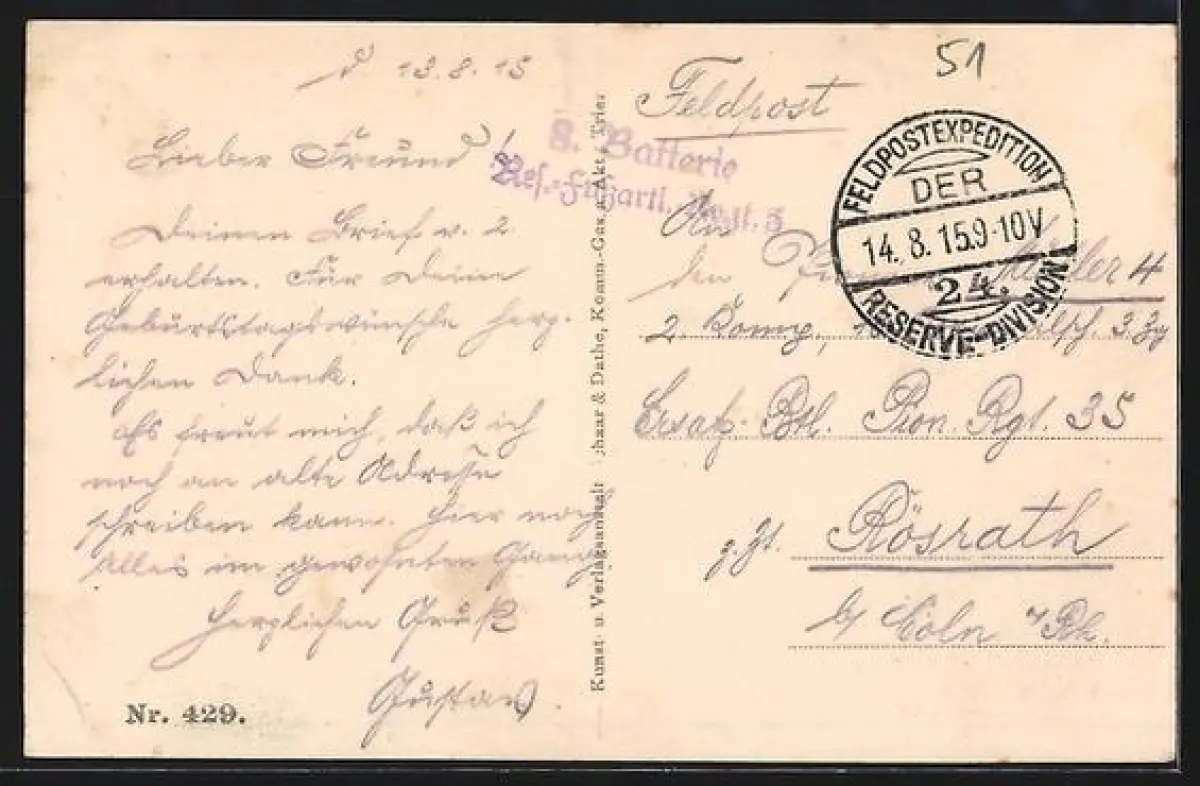 d 13.8.15
Lieber Freund!
Deinen Brief v. 2.
erhalten. Für Deine
Geburtstagswünsche herz-
lichen Dank.
Es freut mich, daß ich
noch an alte Adresse
schreiben kann. Hier noch
Alles im gewohnten Gang.
Herzlichen Gruß
Gustav.
Nr. 429.
Kunst- u. Verlagsanstalt Schaar & Dathe, Komm.-Ges. a. Akt., Trier
8. Batterie
Res.-Fußartl. Regt. 3
51
Feldpost
FELDPOSTEXPEDITION
DER
14. 8. 15 9-10V
24.
RESERVE-DIVISION
An
den Müller 4
2. Komp, 3. Zg
Ersatz-Btl. Pion. Rgt. 35
z. Zt. Rösrath
b/ Cöln a/Rh.